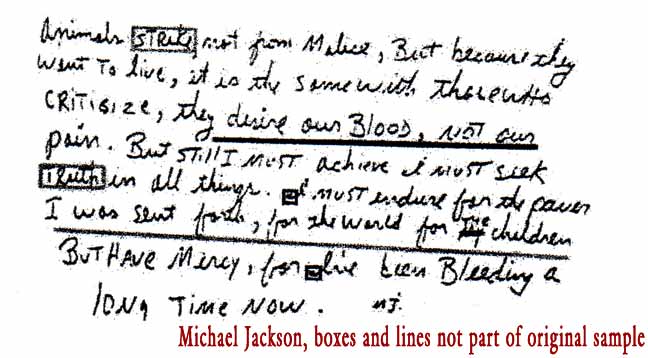 Animals STRIKE, not from Malice, But because they
want To live, it is the same with those who
CRITISIZE, they desire our BLOOD, NOT our
pain. But STILL I MUST achieve I must seek
TRUTH in all things. I must endure for the power
I was sent forth, for the world for THE children
But HAVE Mercy, for I've been Bleeding a
long Time Now. MJ.
Michael Jackson, boxes and lines not part of original sample